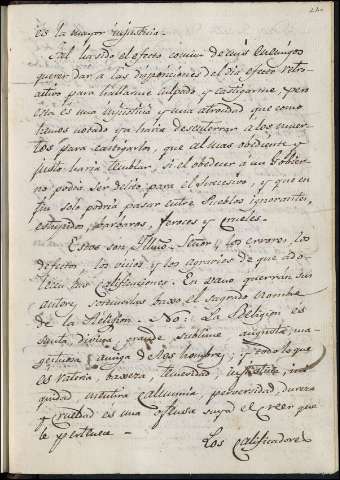 es la mayor injusticia.
Tal ha sido el efecto comun de mis Enemigos
querer dar a las disposiciones del dia efecto retro-
activo para hallarme culpado, y castigarme, pero
esta es una injusticia y una atrocidad que como
hemos notado ya haria desenterrar a los muer-
tos para castigarlos, que al mas obediente y
justo haria temblar, si el obedecer a un Gobier-
no podia ser delito para el sucesivo, y que en
fin solo podria pasar entre Pueblos ignorantes,
estupidos, barbaros, feroces y crueles.
Estos son Yllmo. Señor y los errores, los
defectos, los vicios y los agravios de que ado-
lecen sus calificaciones. En vano querrán sus
autores sostenerlas baxo el Sagrado nombre
de la Religion. No: La Religion es
Santa, divina, grande, sublime, augusta, ma-
gestuosa, amiga de los hombres; y todo lo que
es rateria, baxeza, injusticia, ini-
quidad, mentira, calumnia, perversidad, dureza
y crueldad es una ofensa suya el creer que
le pertenece.
Los Calificadores